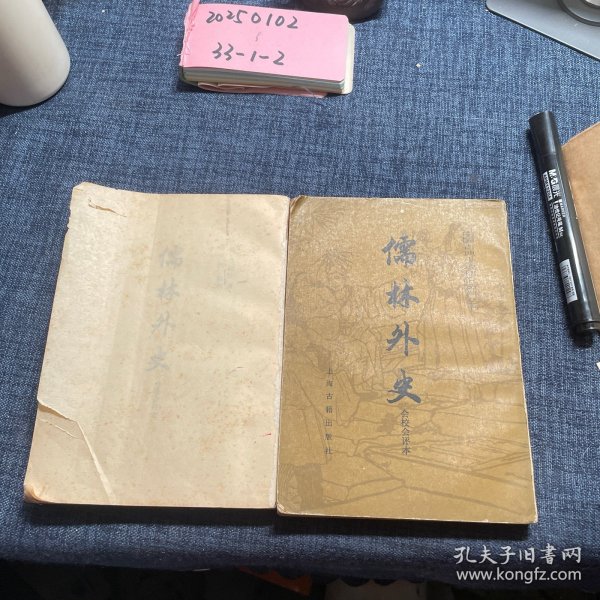 20250102
33-1-2
M&G晨光
儒林外史
儒林外史
会校会评本
上海古籍出版社
孔夫子旧书网
www.kongfz.com